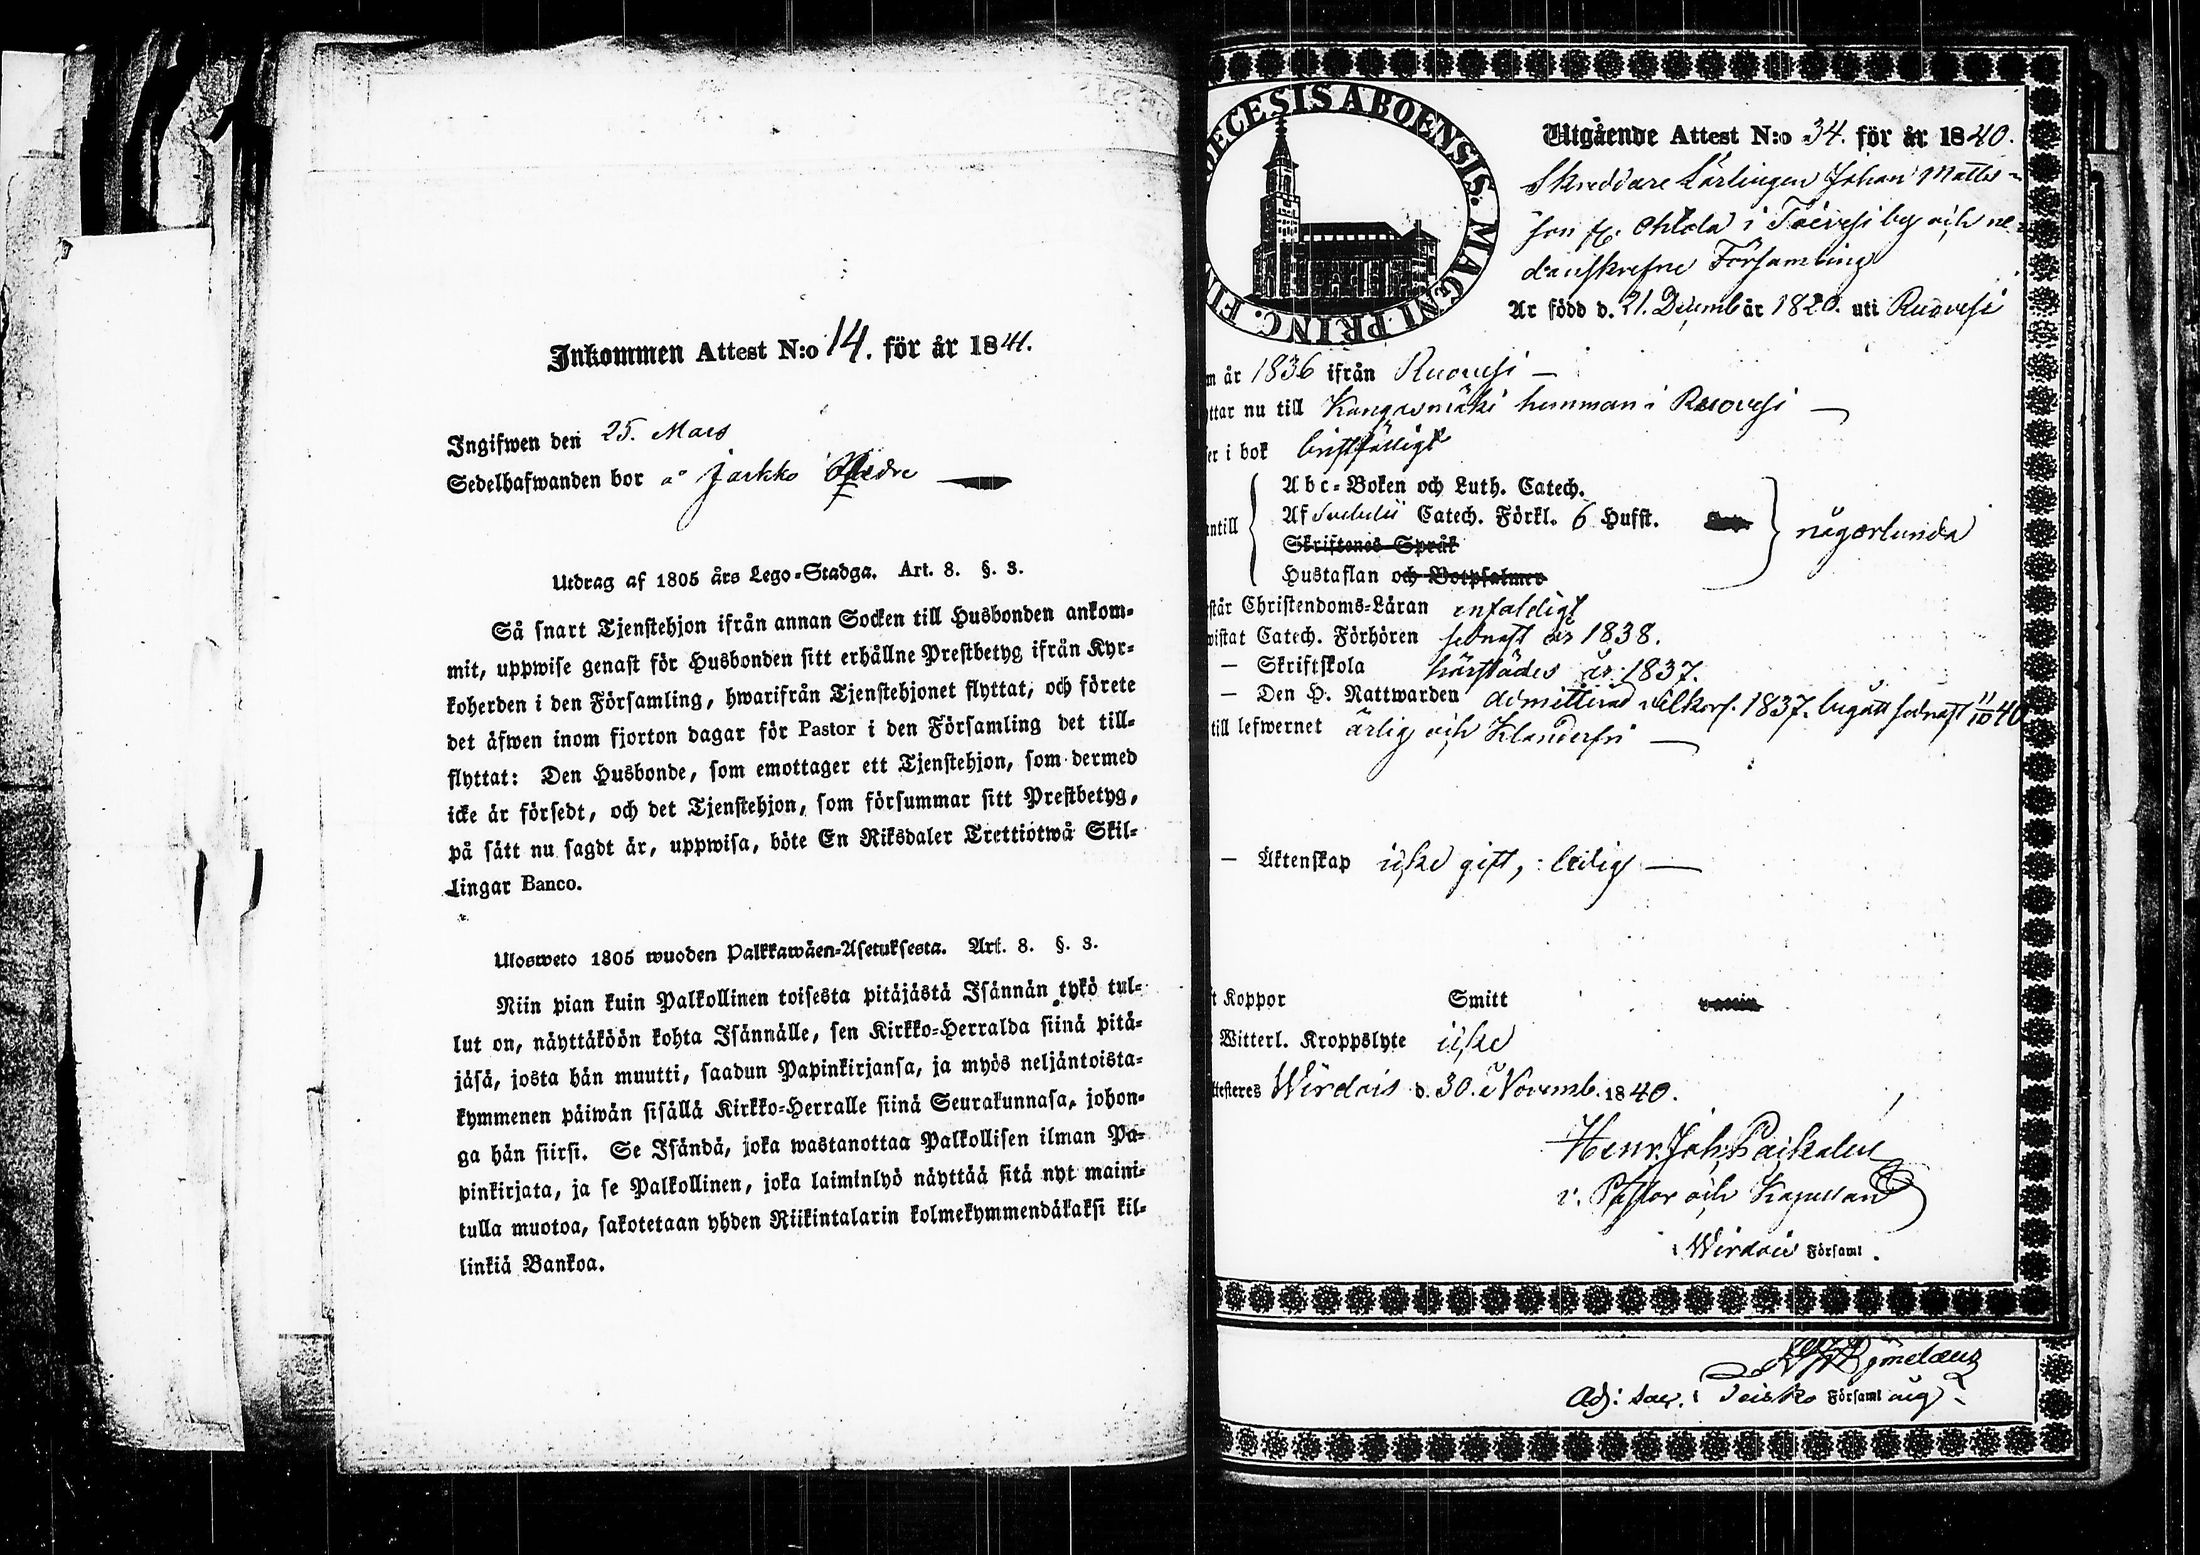 Inkommen Attest N:o 14. för år 1841.
Ingifwen den 25. Mars
Sedelhafwanden bor å Jarkko
Utdrag af 1805 års Lego-Stadga. Art. 8. §. 3.
Så snart Tjenstehjon ifrån annan Socken till Husbonden ankom-
mit, uppwise genast för Husbonden sitt erhållne Prestbetyg ifrån Kyr-
koherden i den Församling, hwarifrån Tjenstehjonet flyttat, och förete
det äfwen inom fjorton dagar för Pastor i den Församling det till-
flyttat: Den Husbonde, som emottager ett Tjenstehjon, som dermed
icke är försedt, och det Tjenstehjon, som försummar sitt Prestbetyg,
på sätt nu sagdt är, uppwisa, böte En Riksdaler Trettiotwå Skil-
lingar Banco.
Ulosweto 1805 wuoden Palkkawäen-Asetuksesta. Art. 8. §. 3.
Niin pian kuin Palkollinen toisesta pitäjästä Isännän tykö tul-
lut on, näyttäköön kohta Isännälle, sen Kirkko-Herralda siinä pitä-
jäsä, josta hän muutti, saadun Papinkirjansa, ja myös neljäntoista-
kymmenen päiwän sisällä Kirkko-Herralle siinä Seurakunnasa, johon-
ga hän siirsi. Se Isändä, joka wastanottaa Palkollisen ilman Pa-
pinkirjata, ja se Palkollinen, joka laiminlyö näyttää sitä nyt maini-
tulla muotoa, sakotetaan yhden Riikintalarin kolmekymmendäkaksi kil-
linkiä Bankoa.
ECESIS ABOENSIS. MAGNI. PRINC. FIN
Utgående Attest N:o 34. för år 1840.
Skreddare Lärlingen Johan Matts-
son fr. Ohtola i Toivesi by och ne-
danskrefne Församling
Är född d. 21. Decemb år 1820. uti Ruovesi
m år 1836 ifrån Ruovesi —
ttar nu till Kangasmäki hemman i Ruovesi —
ser i bok bristfälligt
antill Abc-Boken och Luth. Catech.
Af Svebelii Catech. Förkl. 6 Hufst.
Skriftenes Språk
Hustaflan och Botpsalmer
någorlunda
står Christendoms-Läran enfaldigt
wistat Catech. Förhören sednast år 1838.
— Skriftskola härstädes år 1837.
— Den H. Nattwarden admitterad vilkorl. 1837. begått sednast 11/10 40
till lefwernet ärlig och klanderfri —
— Äktenskap icke gift, : ledig —
t Koppor Smitt
Witterl. Kroppslyte icke
ttesteres Wirdois d. 30. Novemb. 1840.
Henr. Joh.
v. Pastor och Kapellan
i Wirdois Församl.
Adj: sacr. i Teisko Församl